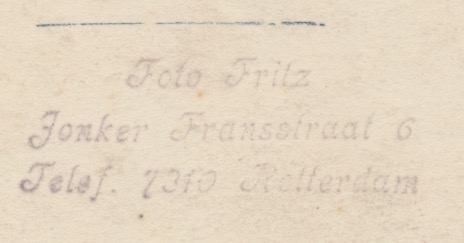 Foto Fritz
Jonker Fransstraat 6
Telef. 7310 Rotterdam